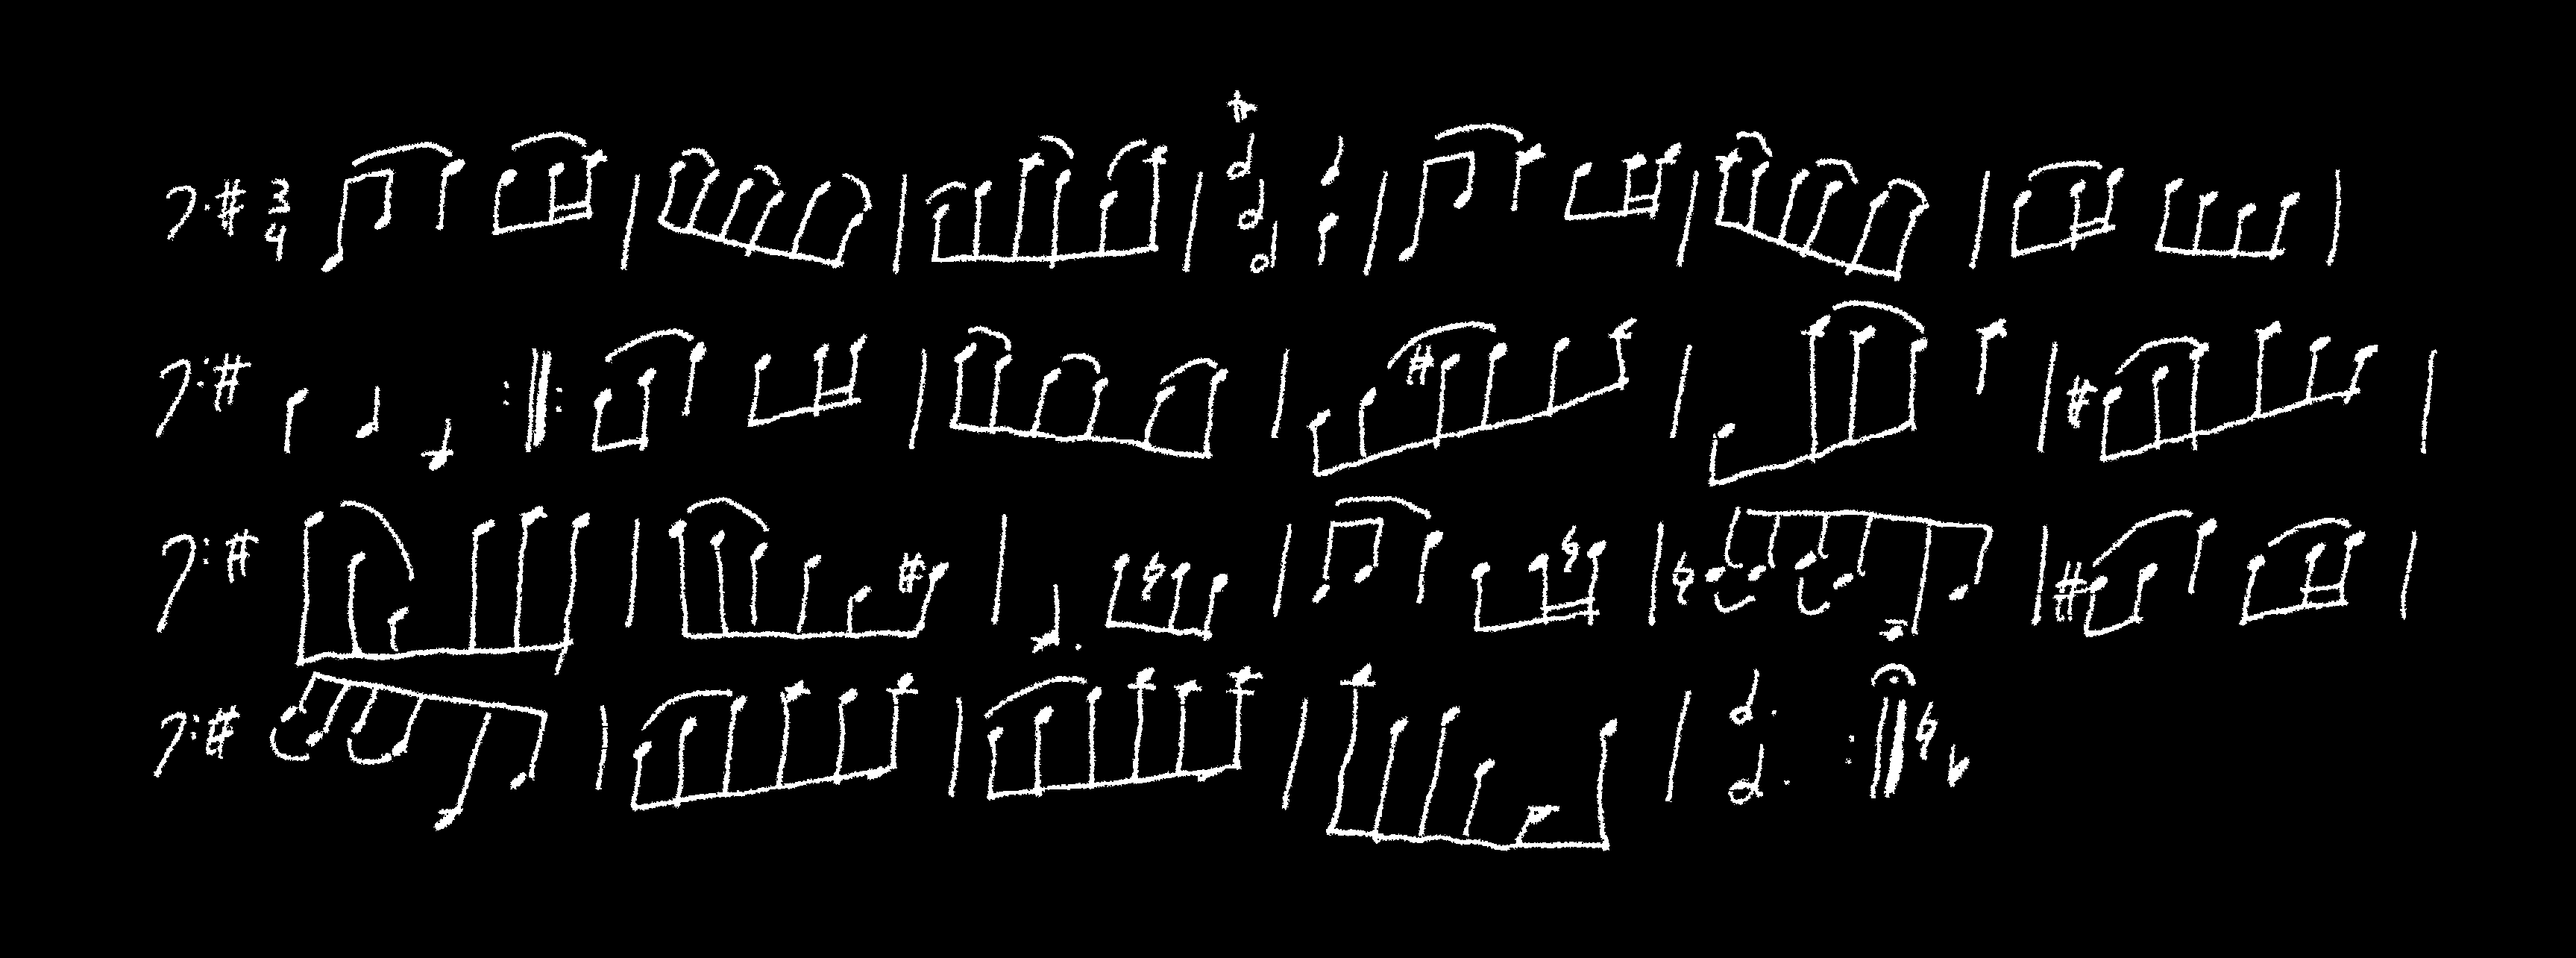 3
4
tr